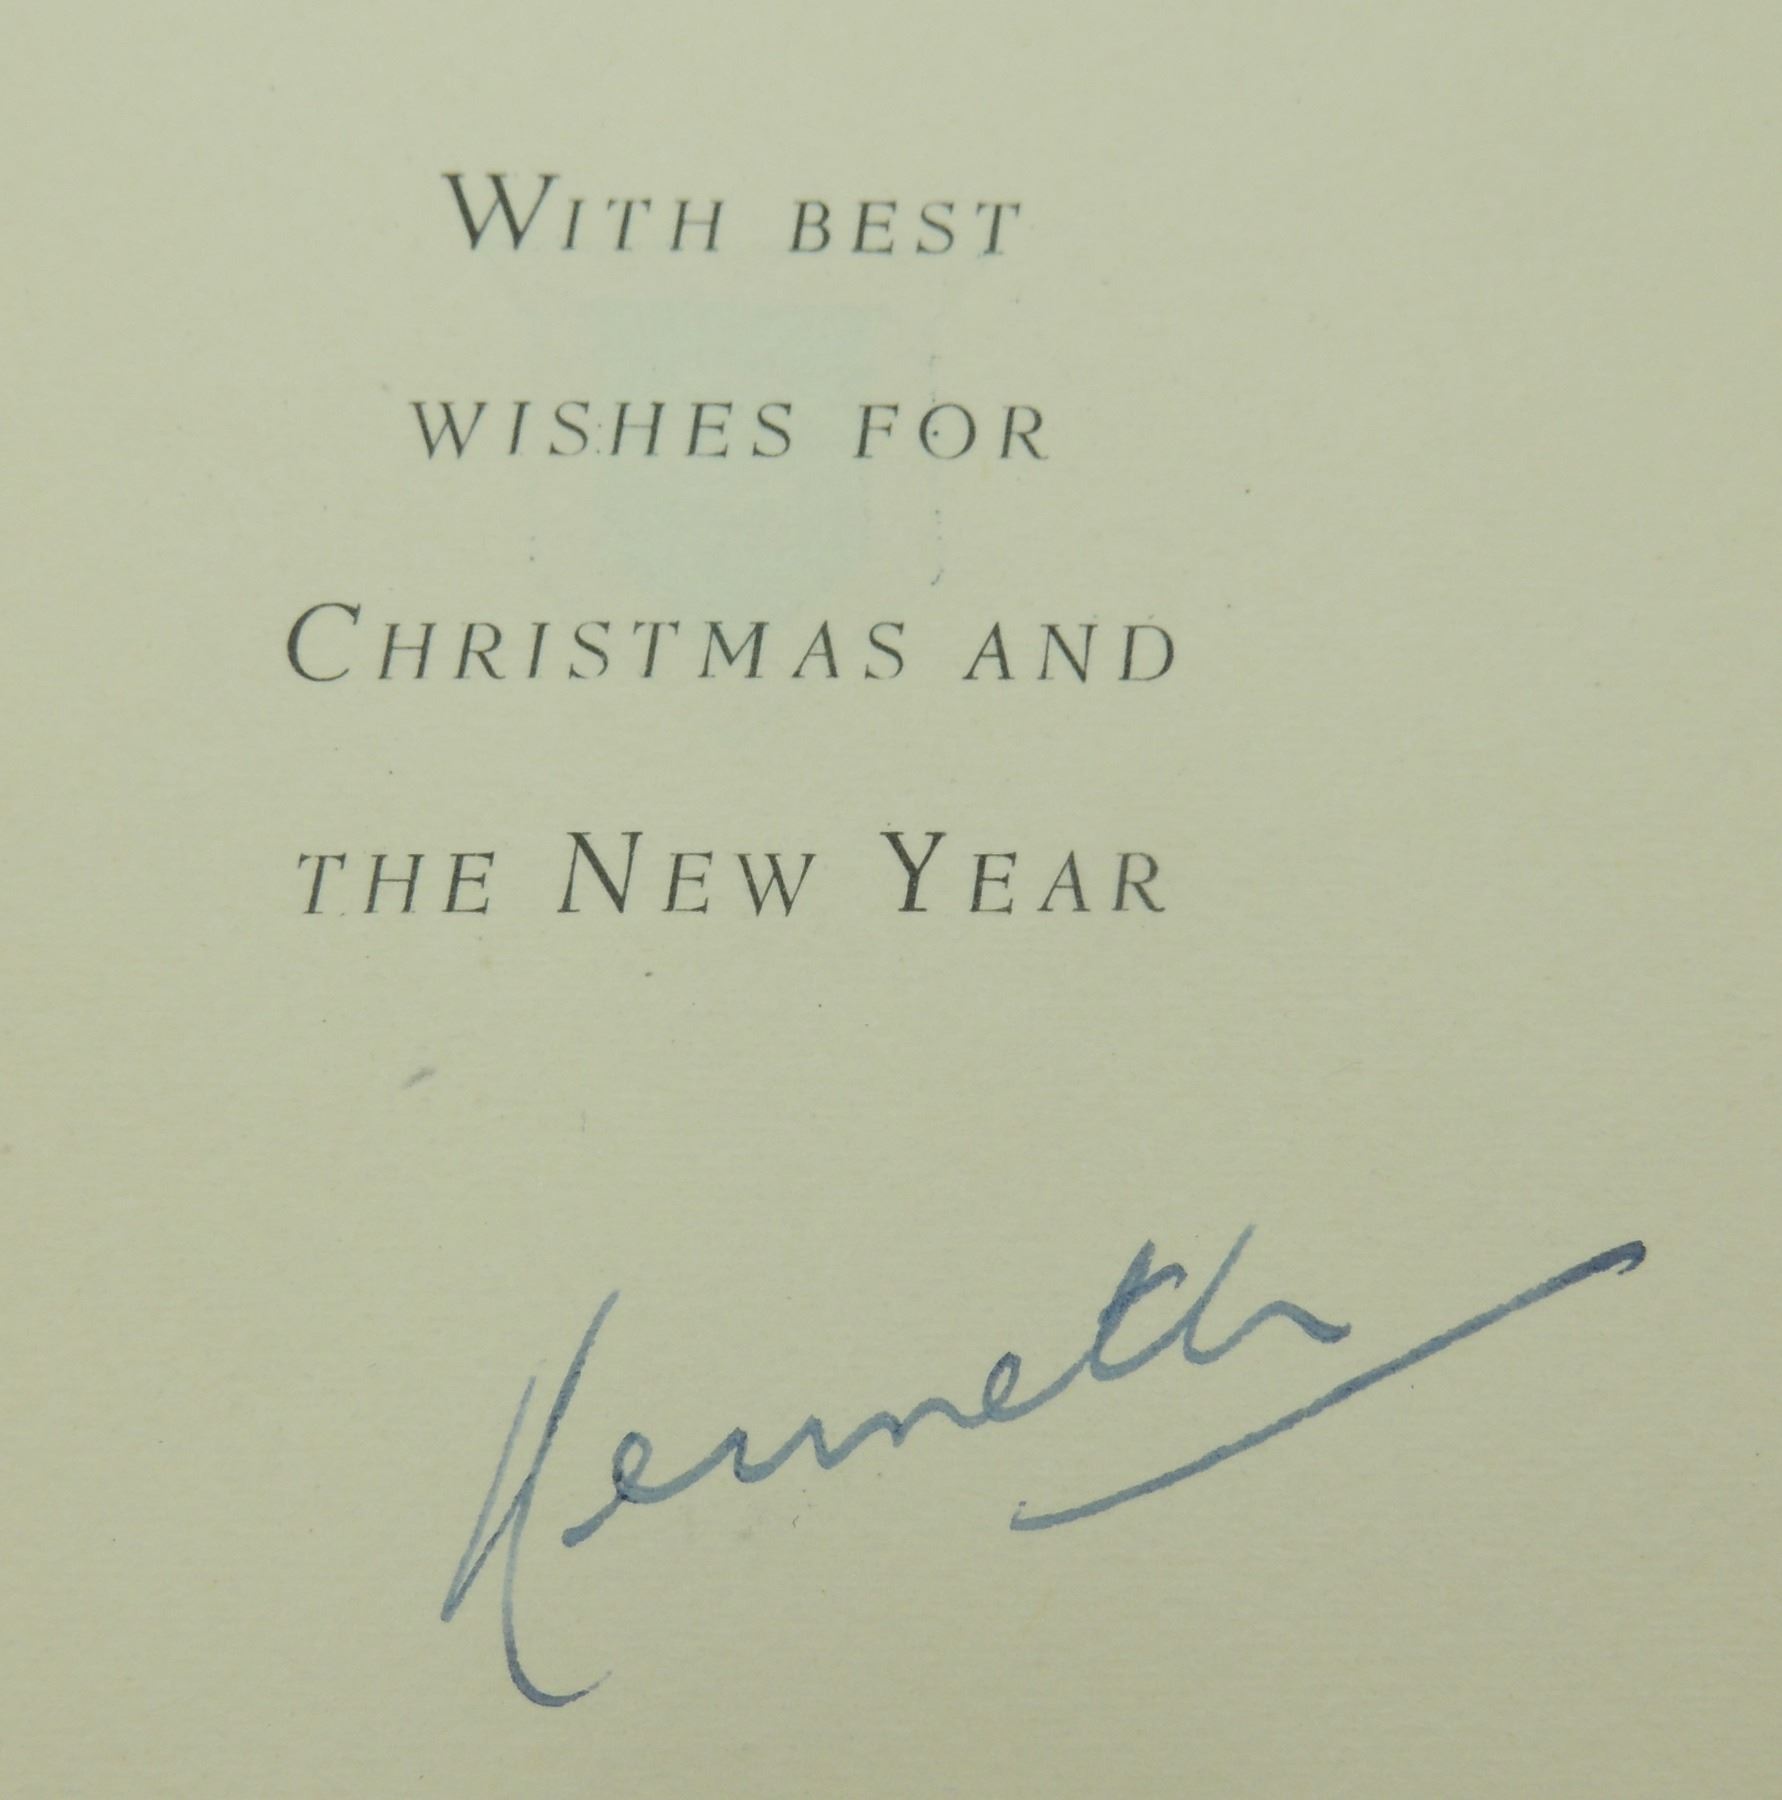 With best
wishes for
Christmas and
the New Year
Kenneth